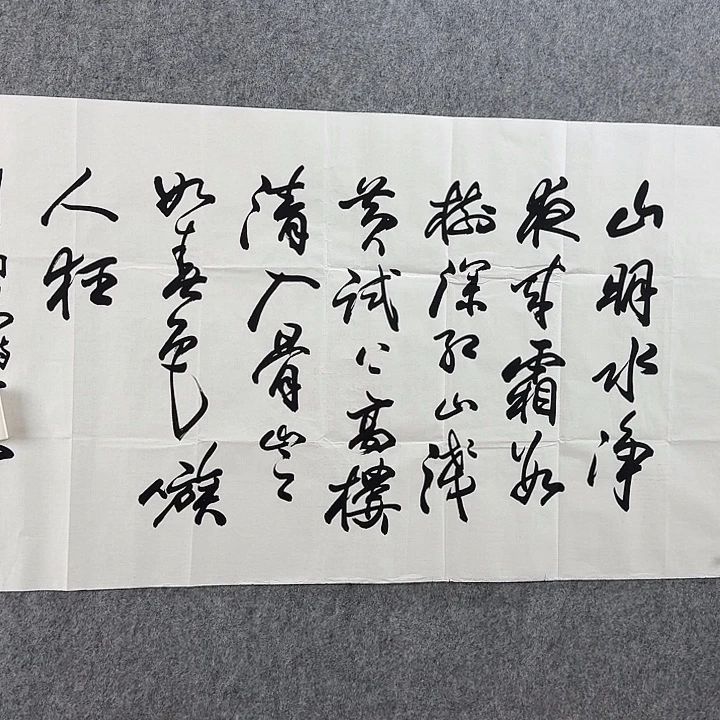 山明水淨
夜来霜数
樹深红出浅
黄试上高樓
清入骨岂
如春色嗾
人狂